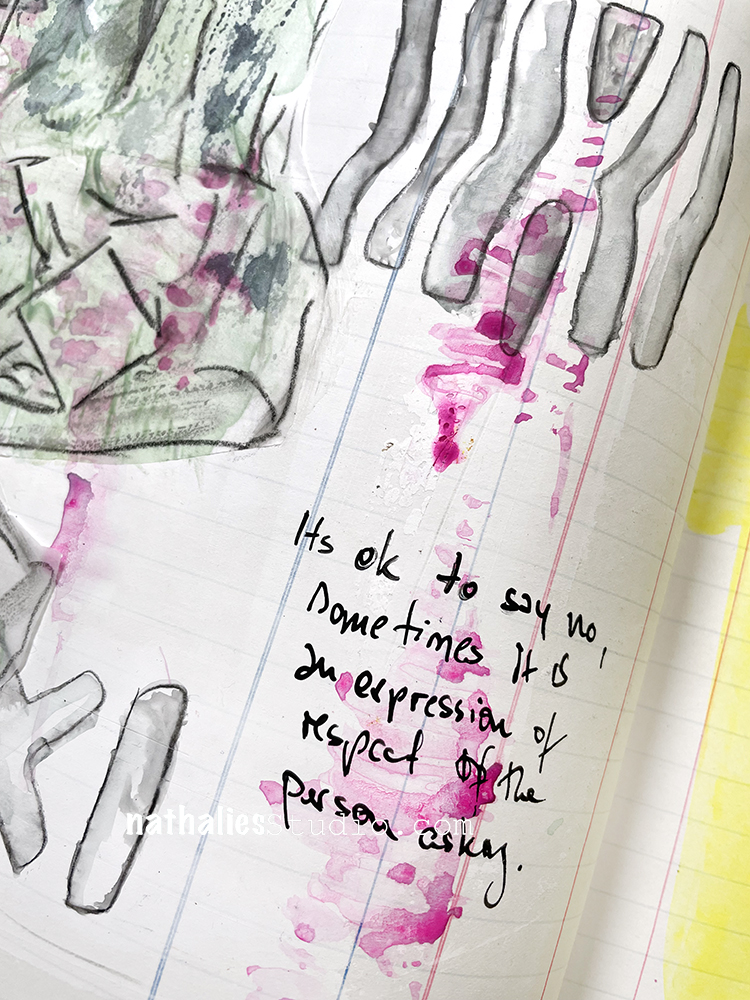 Its ok to say no,
Sometimes it is
an expression of
respect of the
person asking.
nathaliesstudio.com